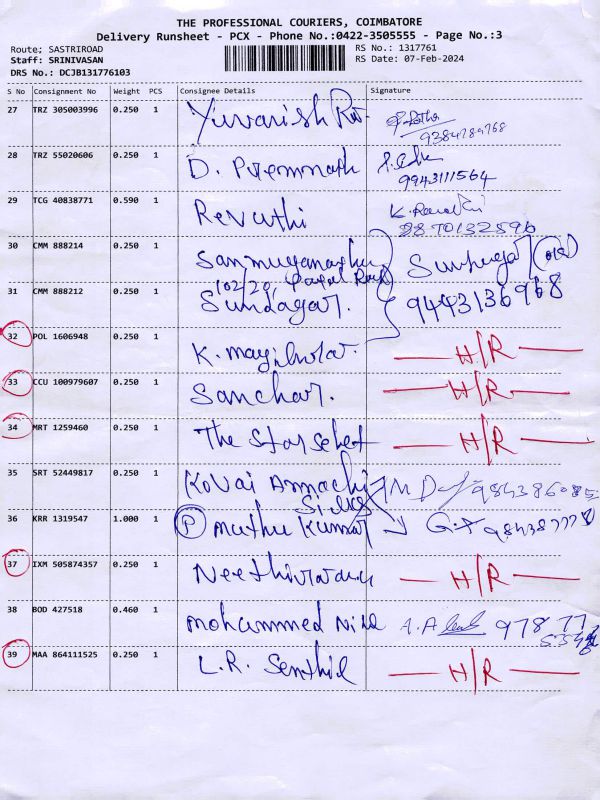 THE PROFESSIONAL COURIERS, COIMBATORE
Delivery Runsheet - PCX - Phone No.:0422-3505555 - Page No.:3
Route; SASTRIROAD RS No.: 1317761
Staff: SRINIVASAN RS Date: 07-Feb-2024
DRS No.: DCJB131776103
S No Consignment No Weight PCS Consignee Details Signature
27 TRZ 305003996 0.250 1 Yuvanish
9384789768
28 TRZ 55020606 0.250 1 D. Premnath
9943111564
29 TCG 40838771 0.590 1 Revathi K. Revathi
30 CMM 888214 0.250 1
102/20,
31 CMM 888212 0.250 1 9443136968
32 POL 1606948 0.250 1 K. H/R
33 CCU 100979607 0.250 1 H/R
34 MRT 1259460 0.250 1 The H/R
35 SRT 52449817 0.250 1 Kovai Annachi
Silks
36 KRR 1319547 1.000 1 P muthu Kumar
37 IXM 505874357 0.250 1 H/R
38 BOD 427518 0.460 1 mohammed A.A 978 77
39 MAA 864111525 0.250 1 L.R. Senthil H/R